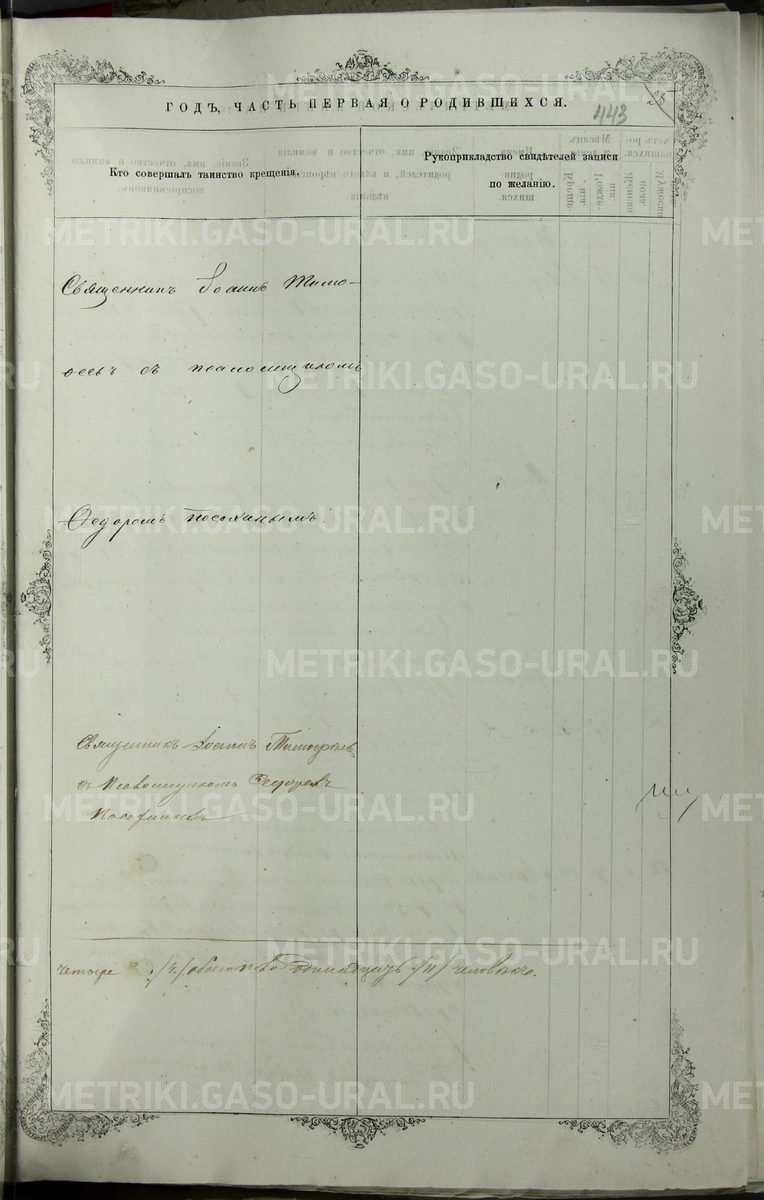 ГОДЪ, ЧАСТЬ ПЕРВАЯ О РОДИВШИХСЯ.
443
25
Кто совершалъ таинство крещенія.
Рукоприкладство свидѣтелей записи
по желанію.
Священникъ Іоаннъ Тимо-
ѳеевъ съ псаломщикомъ
Ѳедоромъ Посохинымъ.
Священникъ Іоаннъ Тимофѣевъ
съ Псаломщикомъ Федоромъ
четыре /4/ обоего пола одинадцать /11/ человѣкъ.
METRIKI.GASO-URAL.RU